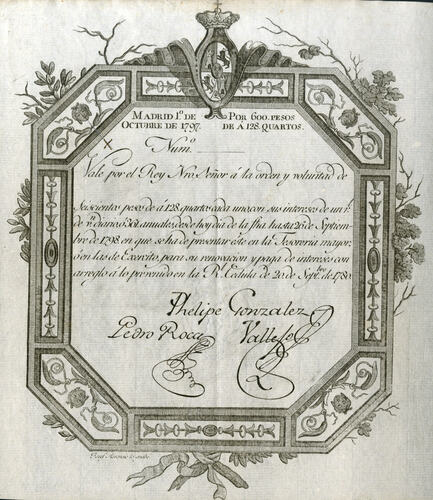 MADRID 1º DE OCTUBRE DE 1797.
POR 600. PESOS DE A 128. QUARTOS.
Numº
Vale por el Rey Nrô Señor á la orden y voluntad de
Seiscientos pesos de á 128 quartos cada uno, con sus intereses de un rl.
de vn. diario, ó 361 anuales, desde hoy dia de la fha hasta 20 de Septiem-
bre de 1798 en que se ha de presentar éste en la Tesorería mayor,
ó en las de Exército, para su renovacion y paga de intereses con
arreglo á lo prevenido en la Rl. Cedula de 20 de Septbre. de 1780.
Phelipe Gonzalez
Pedro Roca Vallejo